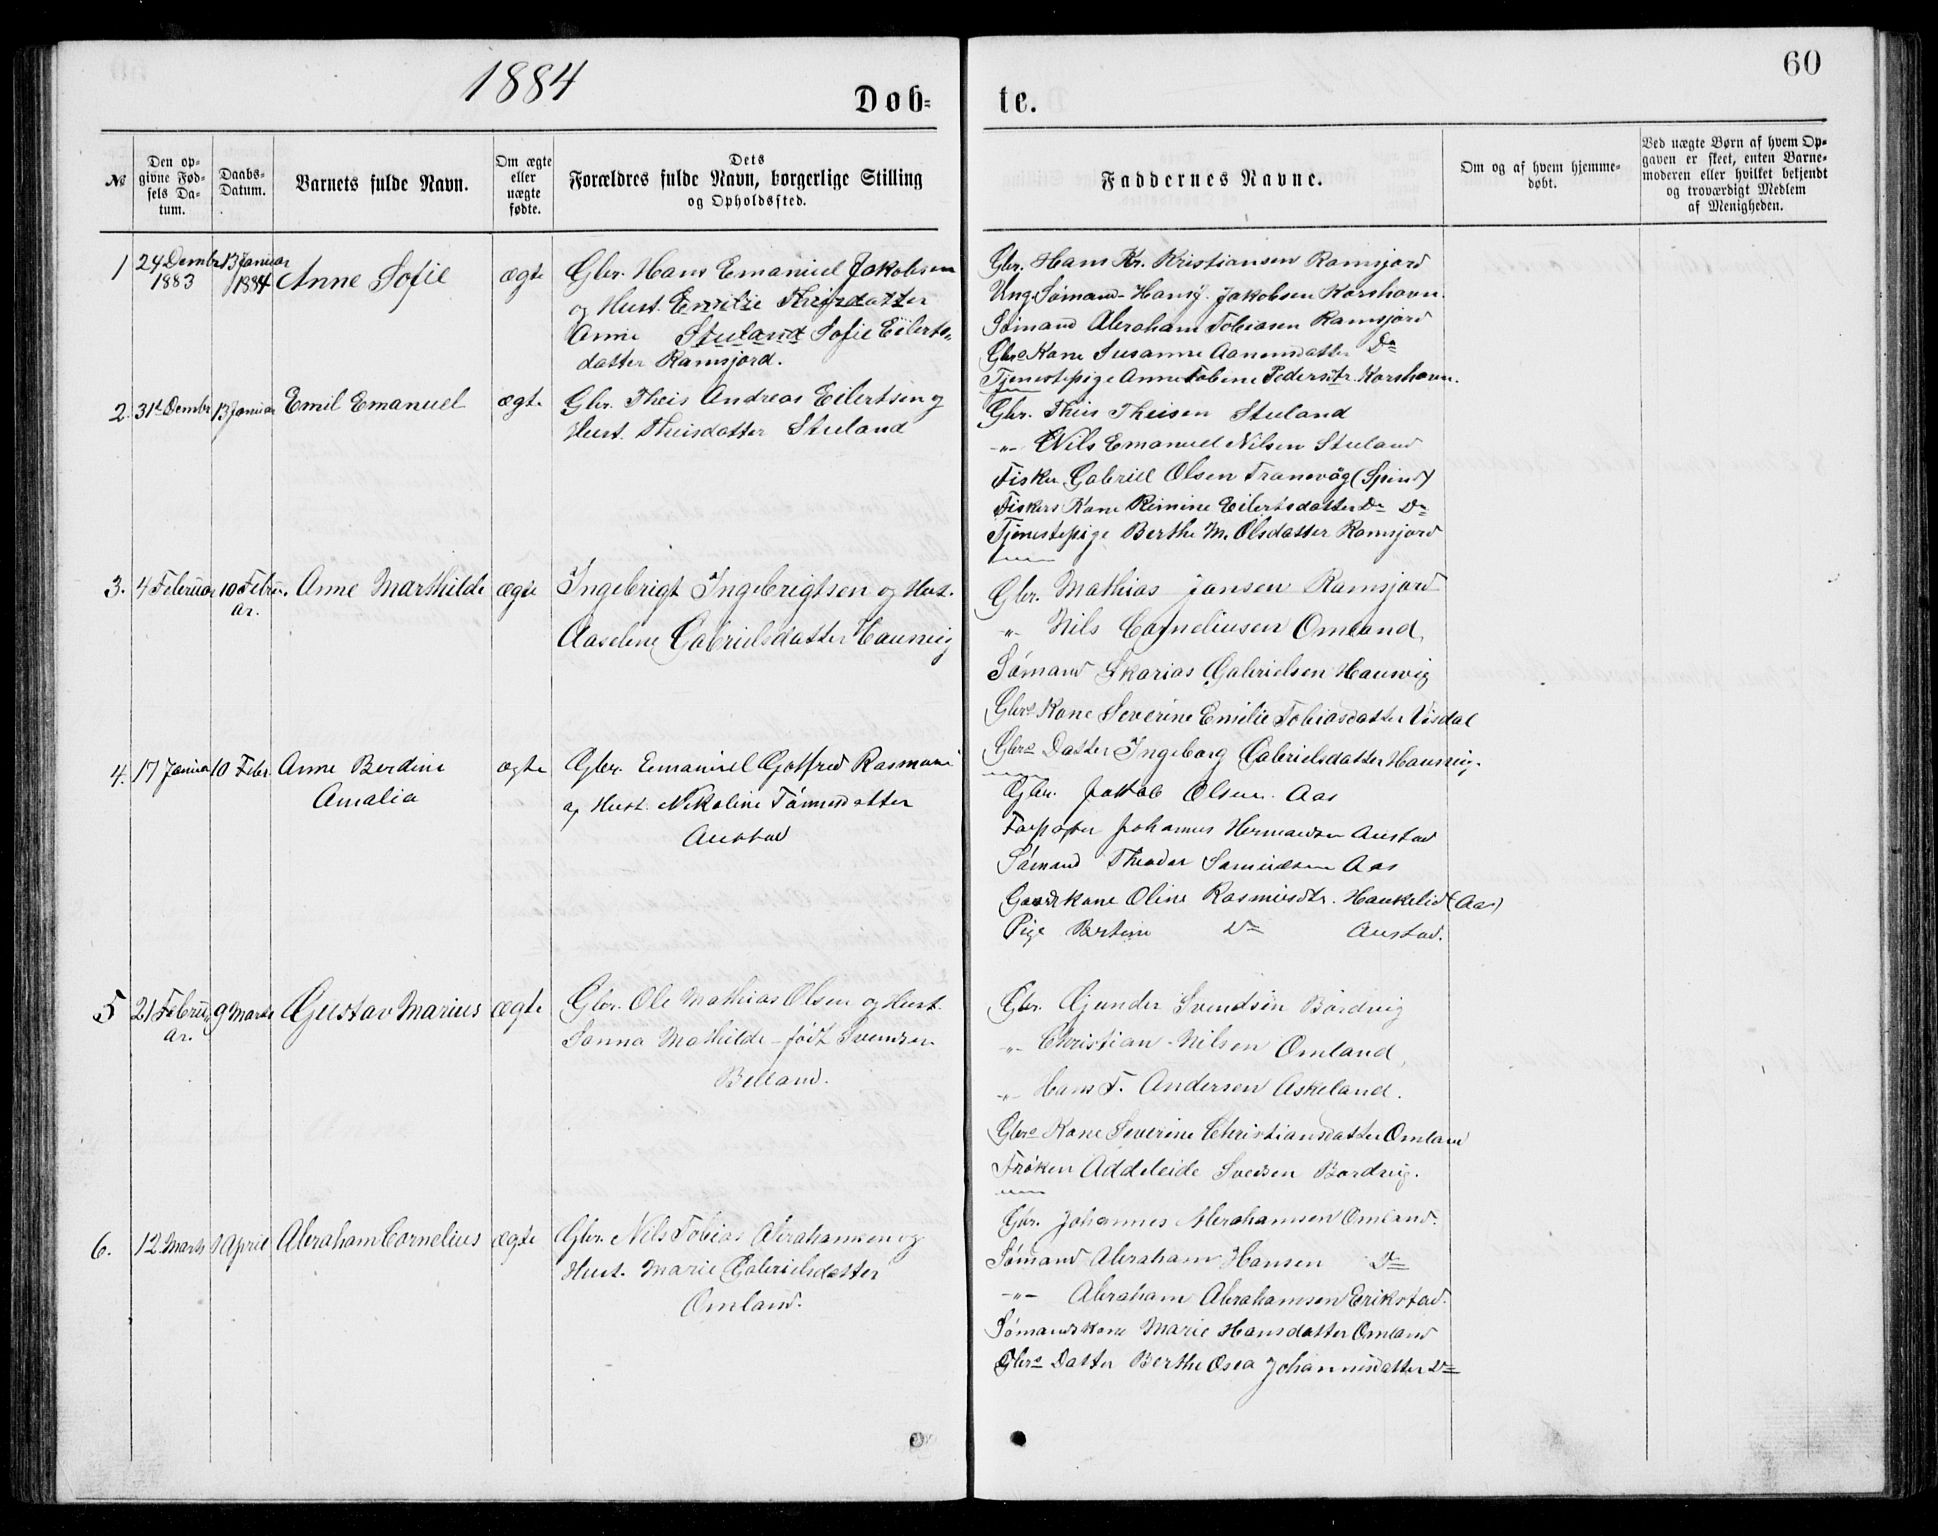 1884
60
Døb-
te.
№
Den op-
givne Fød-
sels Da-
tum.
Daabs-
Datum.
Barnets fulde Navn.
Om ægte
eller
uægte
fødte.
Dets
Forældres fulde Navn, borgerlige Stilling
og Opholdssted.
Faddernes Navne.
Om og af hvem hjemme-
døbt.
Ved uægte Børn af hvem Op-
gaven er skeet, enten Barne-
moderen eller hvilket bekjendt
og troværdigt Medlem
af Menigheden.
1 24 Dembr 13 Januar Anne Sofie ægte Gbr. Hans Emanuel Jakobsen
1883 1884 og Hust. Emilie Theisdatter
Anne Stuland Sofie Eilerts-
datter Ramsjord.
Gbr. Hans Kr. Kristiansen Ramsjord
Unge Sømand Hans J. Jakobsen Korshavn.
Sømand Abraham Tobiasen Ramsjord
Gbrs Kone Susanne Aanensdatter Do
Tjenestepige Anne Tobine Pedersdtr. Korshavn.
2. 31te Dembr 13 Januar Emil Emanuel ægte Gbr. Theis Andreas Eilertsen og
Hust. Theisdatter Stuland
Gbr. Theis Theisen Stuland
-"- Nils Emanuel Nilsen Stuland
Fisker Gabriel Olsen Tranevåg (Spind)
Fiskers Kone Reimine Eilertsdatter Do Do
Tjenestepige Berthe M. Olsdatter Ramsjord
3. 4 Februar 10 Febru- Anne Marthilde ægte Ingebrigt Ingebrigtsen og Hust.
ar. Aaselene Gabrielsdatter Hausvig
Gbr. Mathias Jansen Ramsjord
-"- Nils Corneliusen Omland
Sømand Skarias Gabrielsen Hausvig
Gbrs Kone Severine Emilie Tobiasdatter Visdal
Gbrs Datter Ingeborg Gabrielsdatter Hausvig.
4. 17 Januar 10 Febr. Anne Berdine ægte Gbr. Emanuel Gotfred Rasmusen
Amalia og Hust. Nikoline Tønnesdatter
Austad
Gbr. Jakob Olsen Aas
Forpagter Johannes Hermansen Austad
Sømand Theodor Samuelsen Aas
Gaardkone Oline Rasmusdtr. Haukelid (Aas)
Pige Bertine Do Austad.
5 21 Febru- 9 Marts Gustav Marius ægte Gbr. Ole Mathias Olsen og Hust.
ar. Sanna Mathilde - født Svendsen
Belland.
Gbr. Gunder Svendsen Bordvig
-"- Christian Nilsen Omland
-"- Hans T. Andersen Askeland.
Gbrs Kone Severine Christiansdatter Omland
Frøken Addeleide Svensen Bordvig.
6. 12 Marts April Abraham Cornelius ægte Gbr. Nils Tobias Abrahamsen og
Hust. Marie Gabrielsdatter
Omland.
Gbr. Johannes Abrahamsen Omland.
Sømand Abraham Hansen Do
-"- Abraham Abrahamsen Erikstad.
Sømandskone Marie Hansdatter Omland
Gbrs Datter Berthe Osea Johannesdatter Do